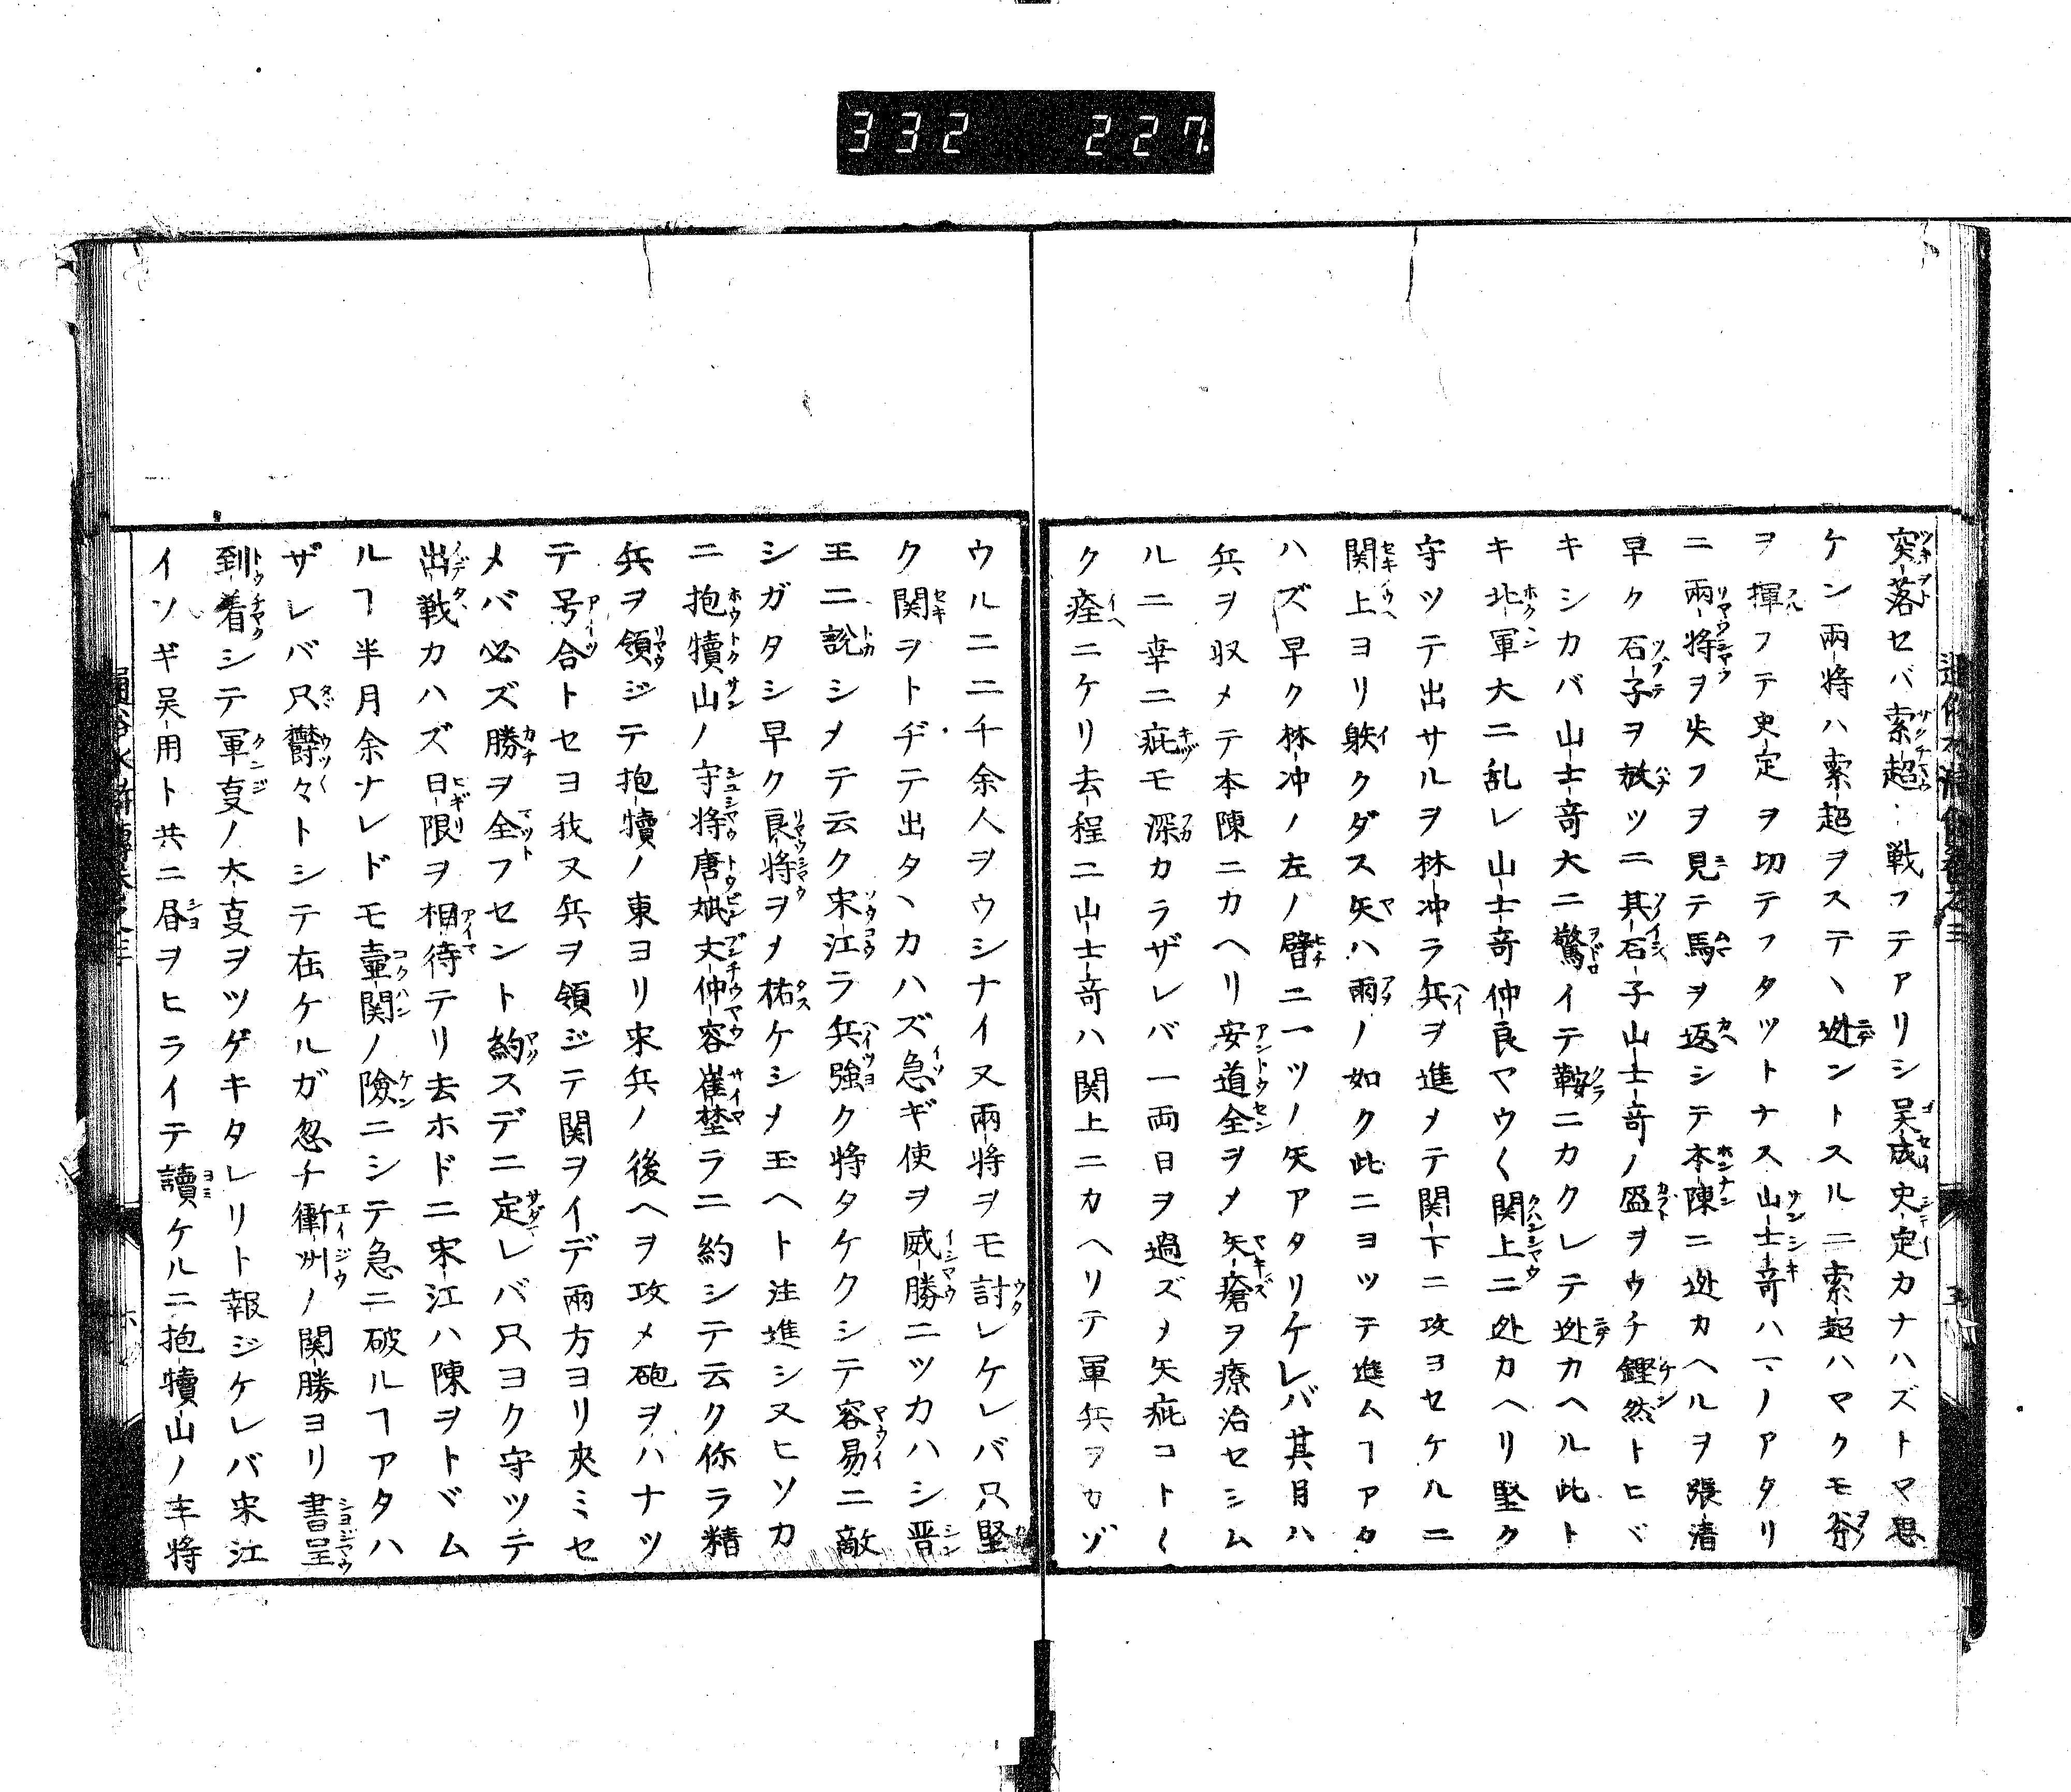 332 227
突落セバ索超ニ戦フテアリシ呉成史定カナハズトヤ思
ケン兩将ハ索超ヲステヽ迯ントスルニ索超ハヤクモ斧
ヲ揮フテ史定ヲ切テフタツトナス山士竒ハ一ノアタリ
ニ兩将ヲ失フヲ見テ馬ヲ返シテ本陳ニ迯カヘルヲ張清
早ク石子ヲ放ツニ其石子山士竒ノ盔ヲウチ鏗然トヒヾ
キシカバ山士竒大ニ驚イテ鞍ニカクレテ迯カヘル此ト
キ北軍大ニ乱レ山士竒仲良ヤウ〱関上ニ迯カヘリ堅ク
守ツテ出サルヲ林冲ラ兵ヲ進メテ関下ニ攻ヨセケルニ
関上ヨリ躾クダス矢ハ雨ノ如ク此ニヨツテ進ムヿアタ
ハズ早ク林冲ノ左ノ臂ニ一ツノ矢アタリケレバ其月ハ
兵ヲ収メテ本陳ニカヘリ安道全ヲメ矢瘡ヲ療治セシム
ルニ幸ニ疵モ深カラザレバ一両日ヲ過ズメ矢疵コト〱
ク痊ニケリ去程ニ山士竒ハ関上ニカヘリテ軍兵ヲカゾ
ウルニ二千余人ヲウシナイ又兩将ヲモ討レケレバ只堅
ク関ヲトヂテ出タヽカハズ急ギ使ヲ威勝ニツカハシ晋
王ニ説シメテ云ク宋江ラ兵強ク将タケクシテ容易ニ敵
シガタシ早ク良将ヲメ祐ケシメ玉ヘト注進シ又ヒソカ
ニ抱犢山ノ守将唐斌文仲容崔埜ラニ約シテ云ク你ラ精
兵ヲ領ジテ抱犢ノ東ヨリ宋兵ノ後ヘヲ攻メ砲ヲハナツ
テ号合トセヨ我又兵ヲ領ジテ関ヲイデ兩方ヨリ夾ミセ
メバ必ズ勝ヲ全フセント約スデニ定レバ只ヨク守ツテ
出戦カハズ日限ヲ相待テリ去ホドニ宋江ハ陳ヲトヾム
ルヿ半月余ナレドモ壷関ノ險ニシテ急ニ破ルヿアタハ
ザレバ只欝々トシテ在ケルガ忽チ衛州ノ関勝ヨリ書呈
到着シテ軍㕝ノ大㕝ヲツゲキタレリト報ジケレバ宋江
イソギ呉用ト共ニ昼ヲヒライテ讀ケルニ抱犢山ノ主将